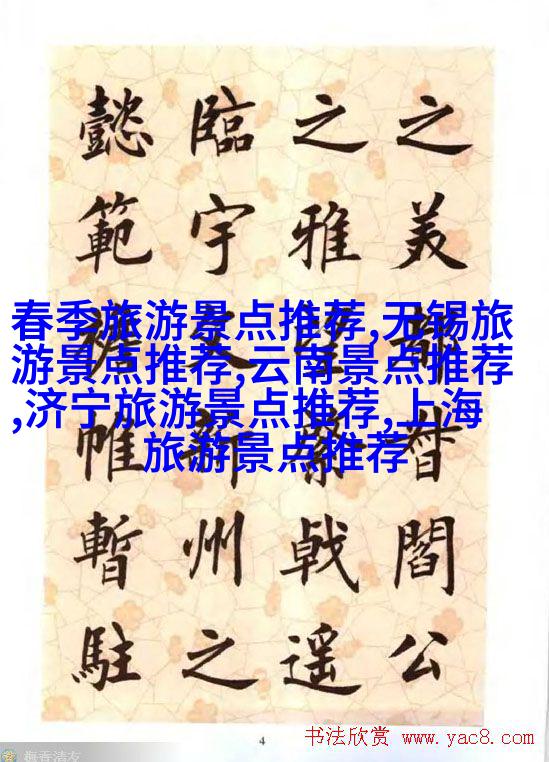 之美都督閻公
之雅望棨戟遥
臨宇文新州之
懿範襜帷暫駐
春季旅游景点推荐,无锡旅
游景点推荐,云南景点推荐
,济宁旅游景点推荐,上海
旅游景点推荐
4
书法欣赏 www.yac8.com
梅香清友